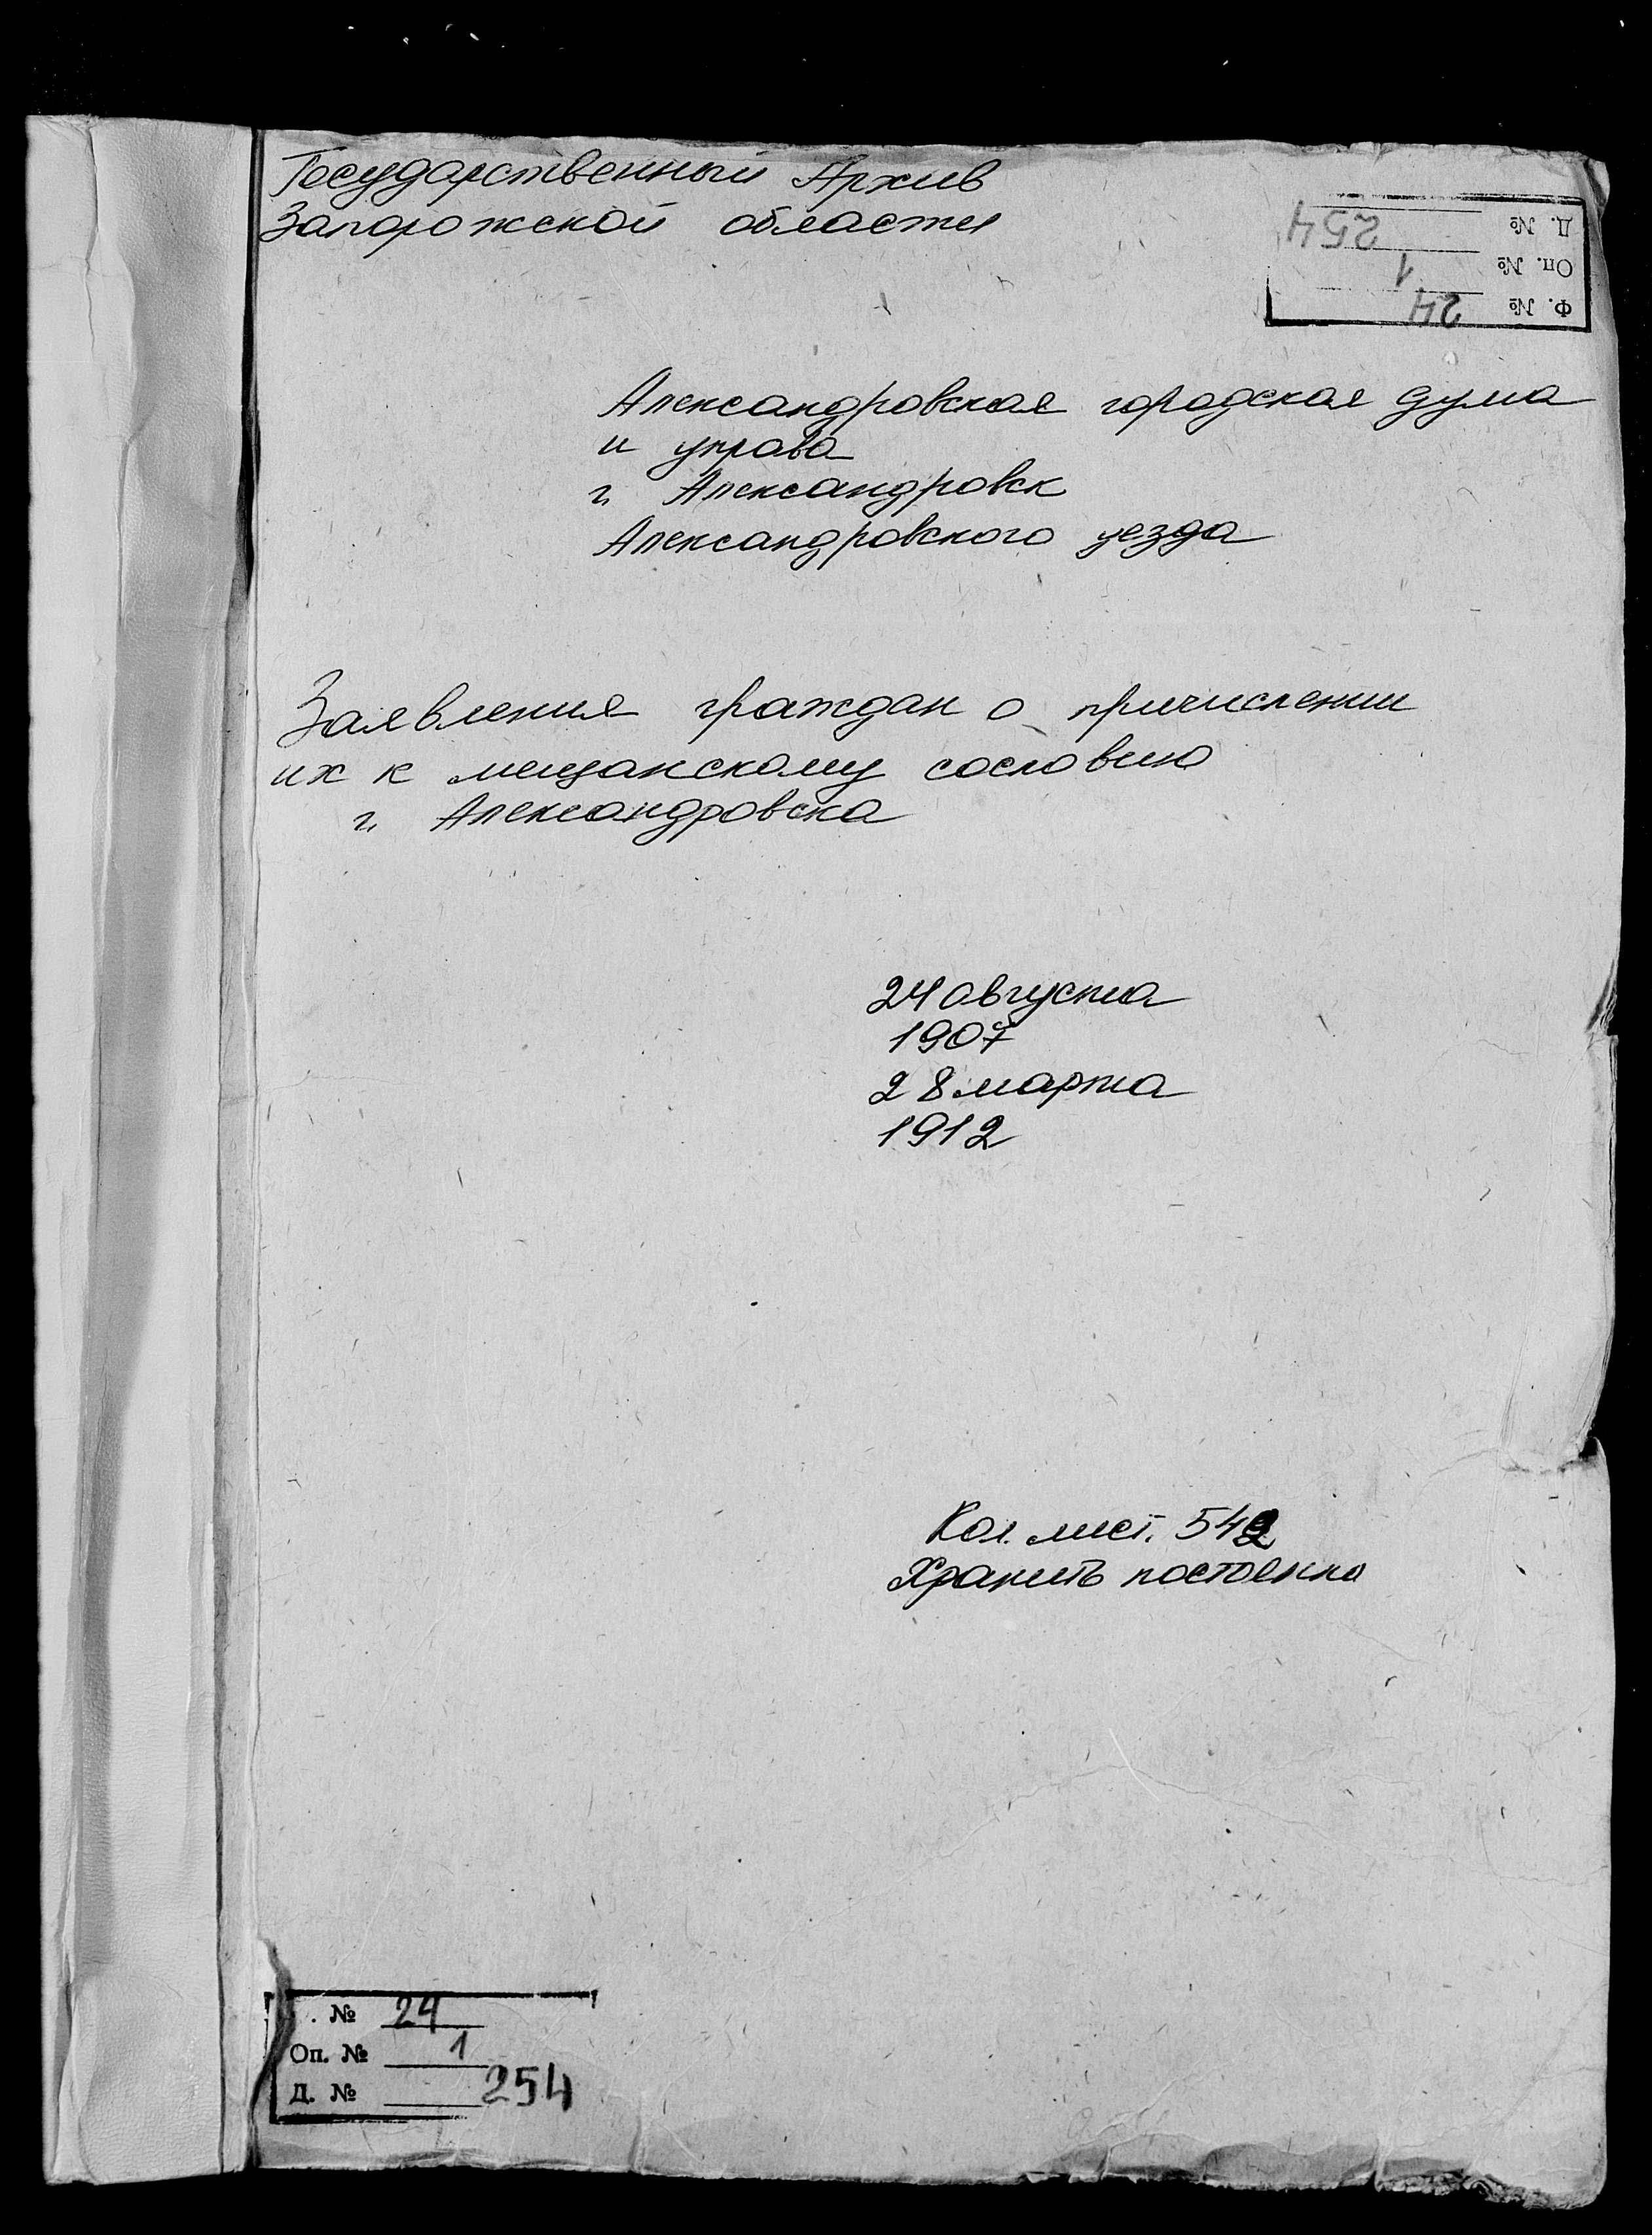 Государственный Архив
Запорожской области
Д. № 254
Оп. № 1
Ф. № 24
Александровская городская дума
и управа
г. Александровск
Александровского уезда
Заявления граждан о причислении
их к мещанскому сословию
г. Александровска
24 августа
1907
28 марта
1912
Кол. лист. 542
Хранить постоянно
. № 24
Оп. № 1
Д. № 254